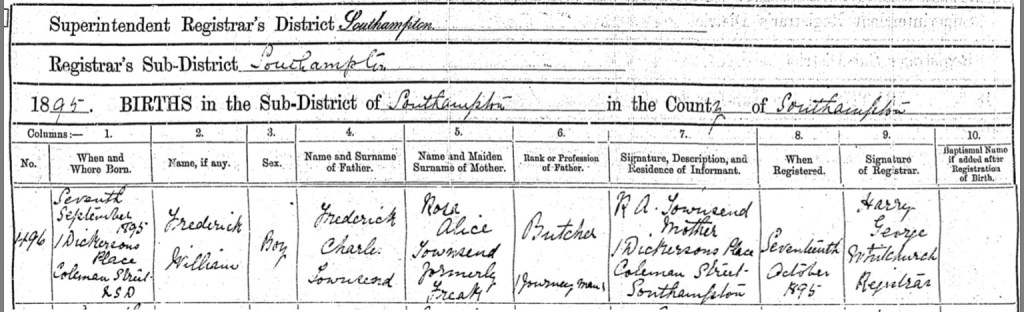 Superintendent Registrar's District Southampton
Registrar's Sub-District Southampton
1895. BIRTHS in the Sub-District of Southampton in the County of Southampton
Columns:— 1. 2. 3. 4. 5. 6. 7. 8. 9. 10.
No. When and Where Born. Name, if any. Sex. Name and Surname of Father. Name and Maiden Surname of Mother. Rank or Profession of Father. Signature, Description, and Residence of Informant. When Registered. Signature of Registrar. Baptismal Name if added after Registration of Birth.
496
Seventh
September
1895
1 Dickersons
Place
Coleman Street
R.S.D
Frederick
William
Boy
Frederick
Charles
Townsend
Rosa
Alice
Townsend
formerly
Freak
Butcher
(Journeyman)
R A Townsend
Mother
1 Dickersons Place
Coleman Street
Southampton
Seventeenth
October
1895
Harry
George
Whitchurch
Registrar